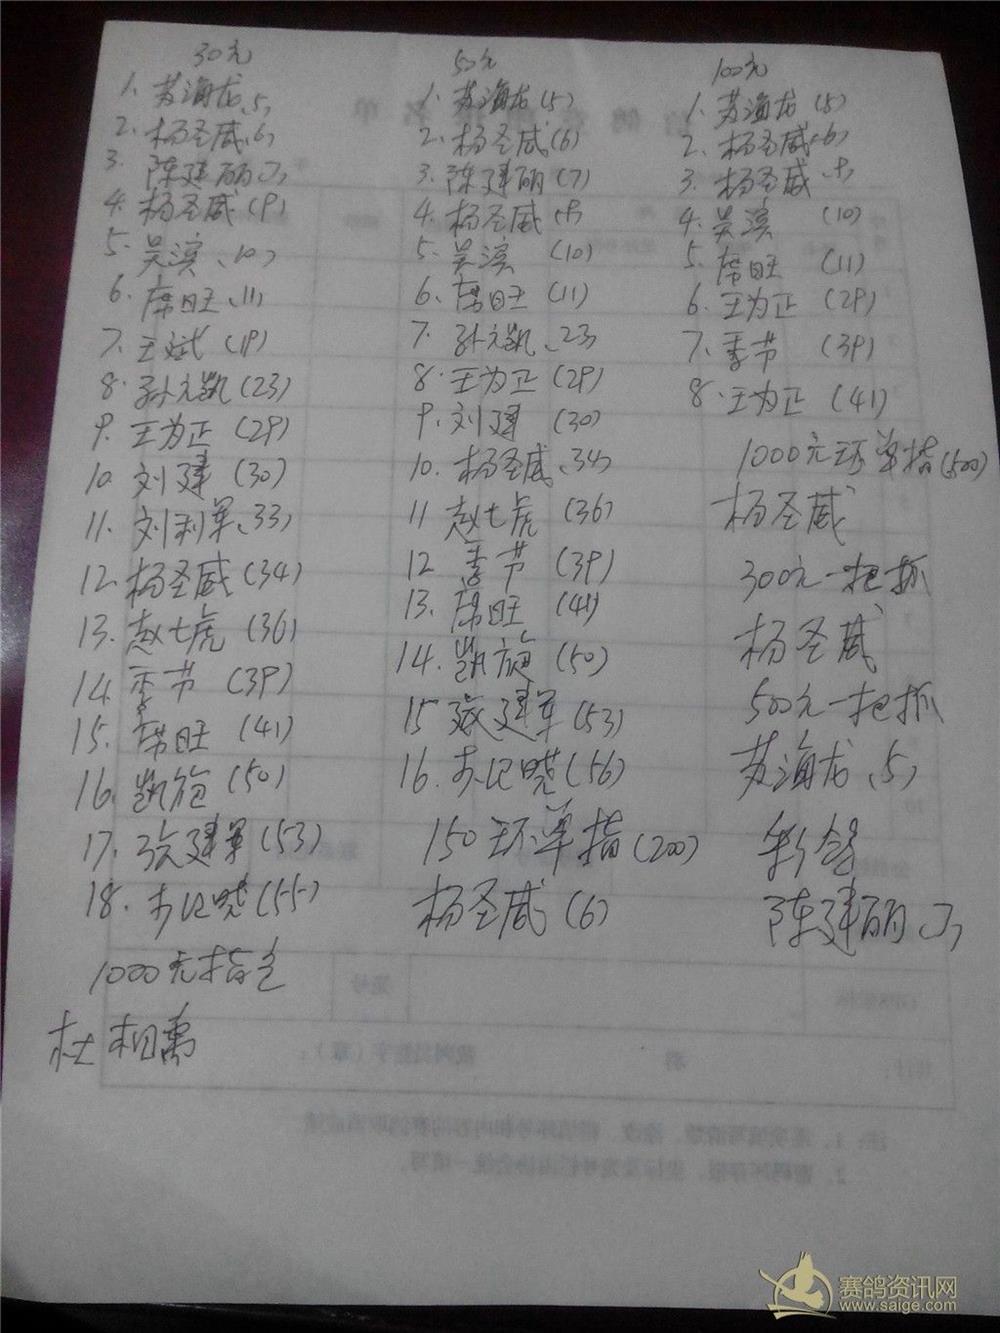 30元
1. 苏海龙(5)
2. 杨圣威(6)
3. 陈建丽(7)
4. 杨圣威(9)
5. 吴滨(10)
6. 席旺(11)
7. 王斌(19)
8. 孙元凯(23)
9. 王为正(29)
10. 刘建(30)
11. 刘利军(33)
12. 杨圣威(34)
13. 赵七虎(36)
14. 季节(39)
15. 席旺(41)
16. 凯旋(50)
17. 张建军(53)
18. 晓(55)
1000元指定
杜相禹
50元
1. 苏海龙(5)
2. 杨圣威(6)
3. 陈建丽(7)
4. 杨圣威(9)
5. 吴滨(10)
6. 席旺(11)
7. 孙元凯(23)
8. 王为正(29)
9. 刘建(30)
10. 杨圣威(34)
11 赵七虎(36)
12 季节(39)
13. 席旺(41)
14. 凯旋(50)
15 张建军(53)
16. 晓(56)
150环单指(200)
杨圣威(6)
100元
1. 苏海龙(5)
2. 杨圣威(6)
3. 杨圣威(9)
4. 吴滨(10)
5. 席旺(11)
6. 王为正(29)
7. 季节(39)
8. 王为正(41)
1000元环单指(500)
杨圣威
300元一把抓
杨圣威
500元一把抓
苏海龙(5)
陈建丽(7)
赛鸽资讯网
www.saige.com